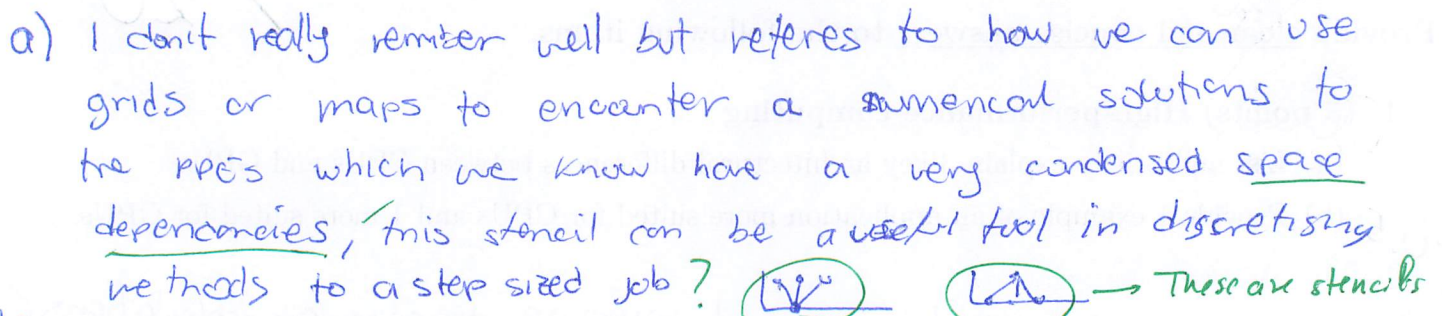 a) I don't really remiber well but referes to how we can use
grids or maps to encounter a numerical solutions to
the PPEs which we know have a very condensed space
dependancies, this stencil can be a useful tool in discretising
methods to a step sized job ? → These are stencils